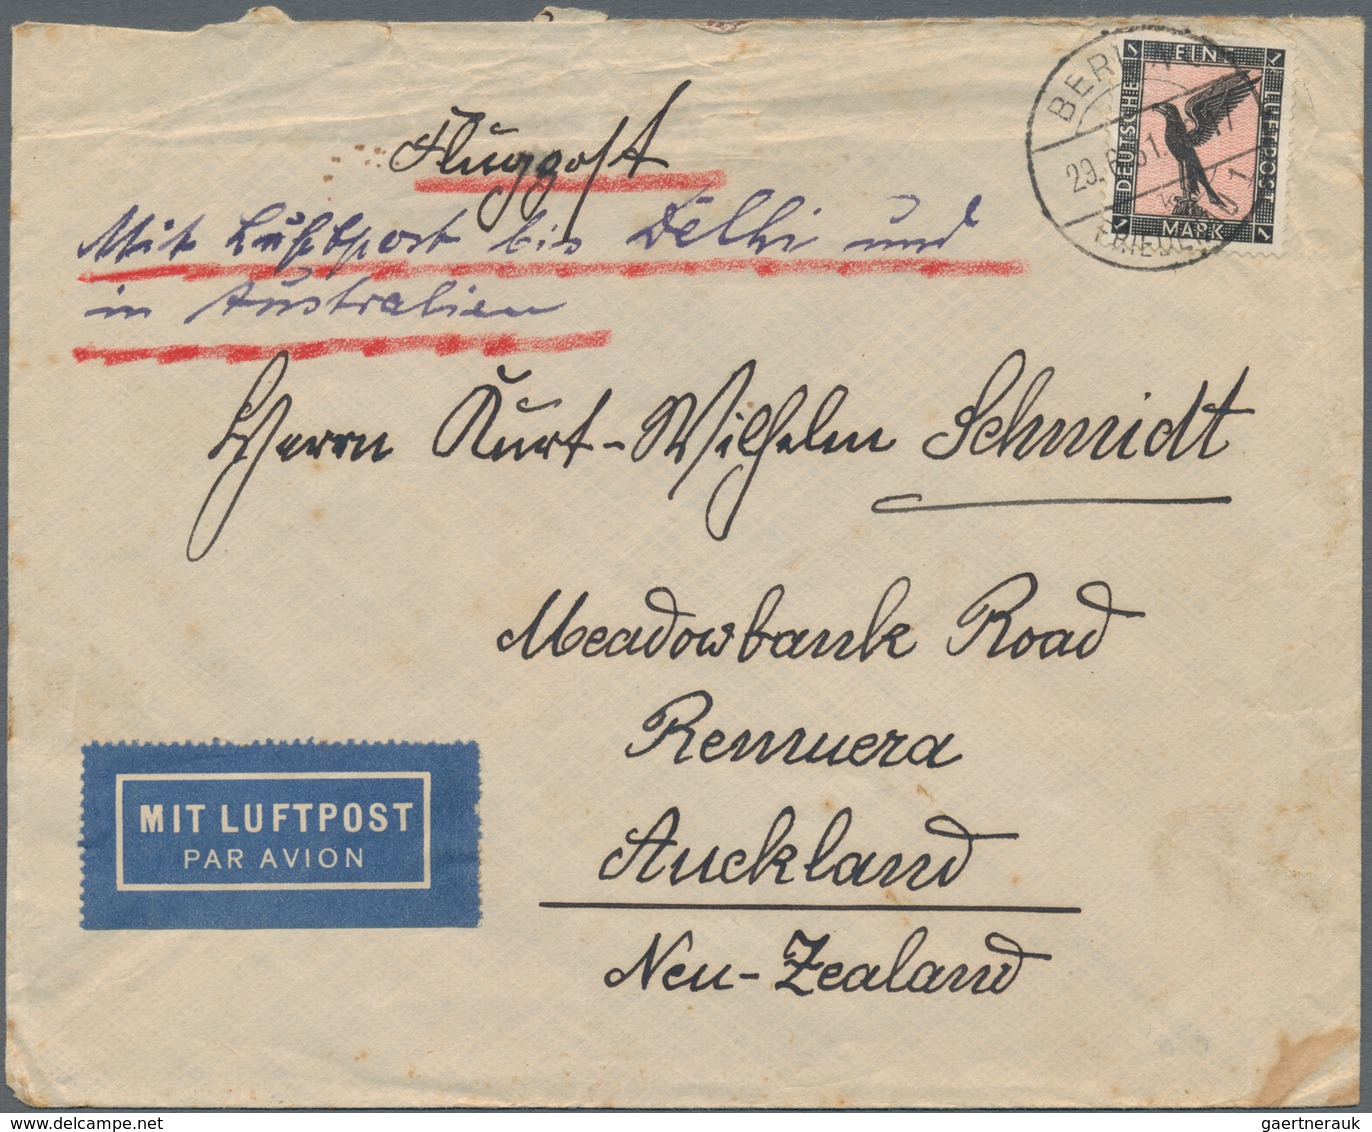 Fluggost
Mit Luftpost bis Delhi und
in Australien
Herrn Kurt-Wilhelm Schmidt
Meadowbank Road
Remuera
Auckland
Neu-Zealand
MIT LUFTPOST
PAR AVION
EINE
DEUTSCHE
LUFTPOST
MARK
1
1
1
1
BERLIN
29.6.31.
gaertnerauk